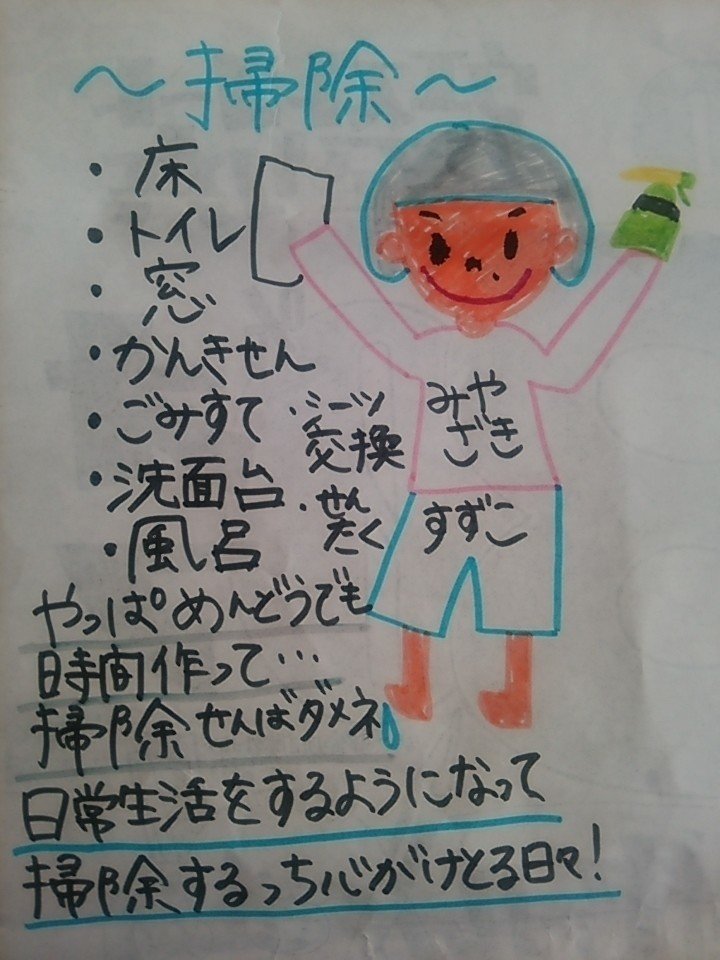 ～掃除～
・床
・トイレ
・窓
・かんきせん
・ごみすて
・洗面台
・風呂
・シーツ
交換
・せん
たく
みや
ざき
すずこ
やっぱめんどうでも
時間作って…
掃除せんばダメネ
日常生活をするようになって
掃除するっち心がけとる日々！